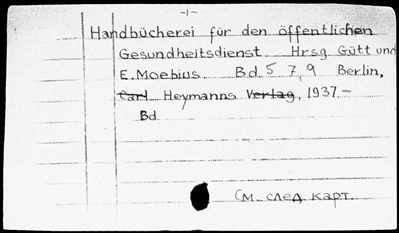 -1-
Handbücherei für den öffentlichen
Gesundheitsdienst. Hrsg Gütt und
E. Moebius. Bd. 5 7, 9 Berlin,
Carl Heymanns Verlag, 1937.-
Bd
См. след. карт.